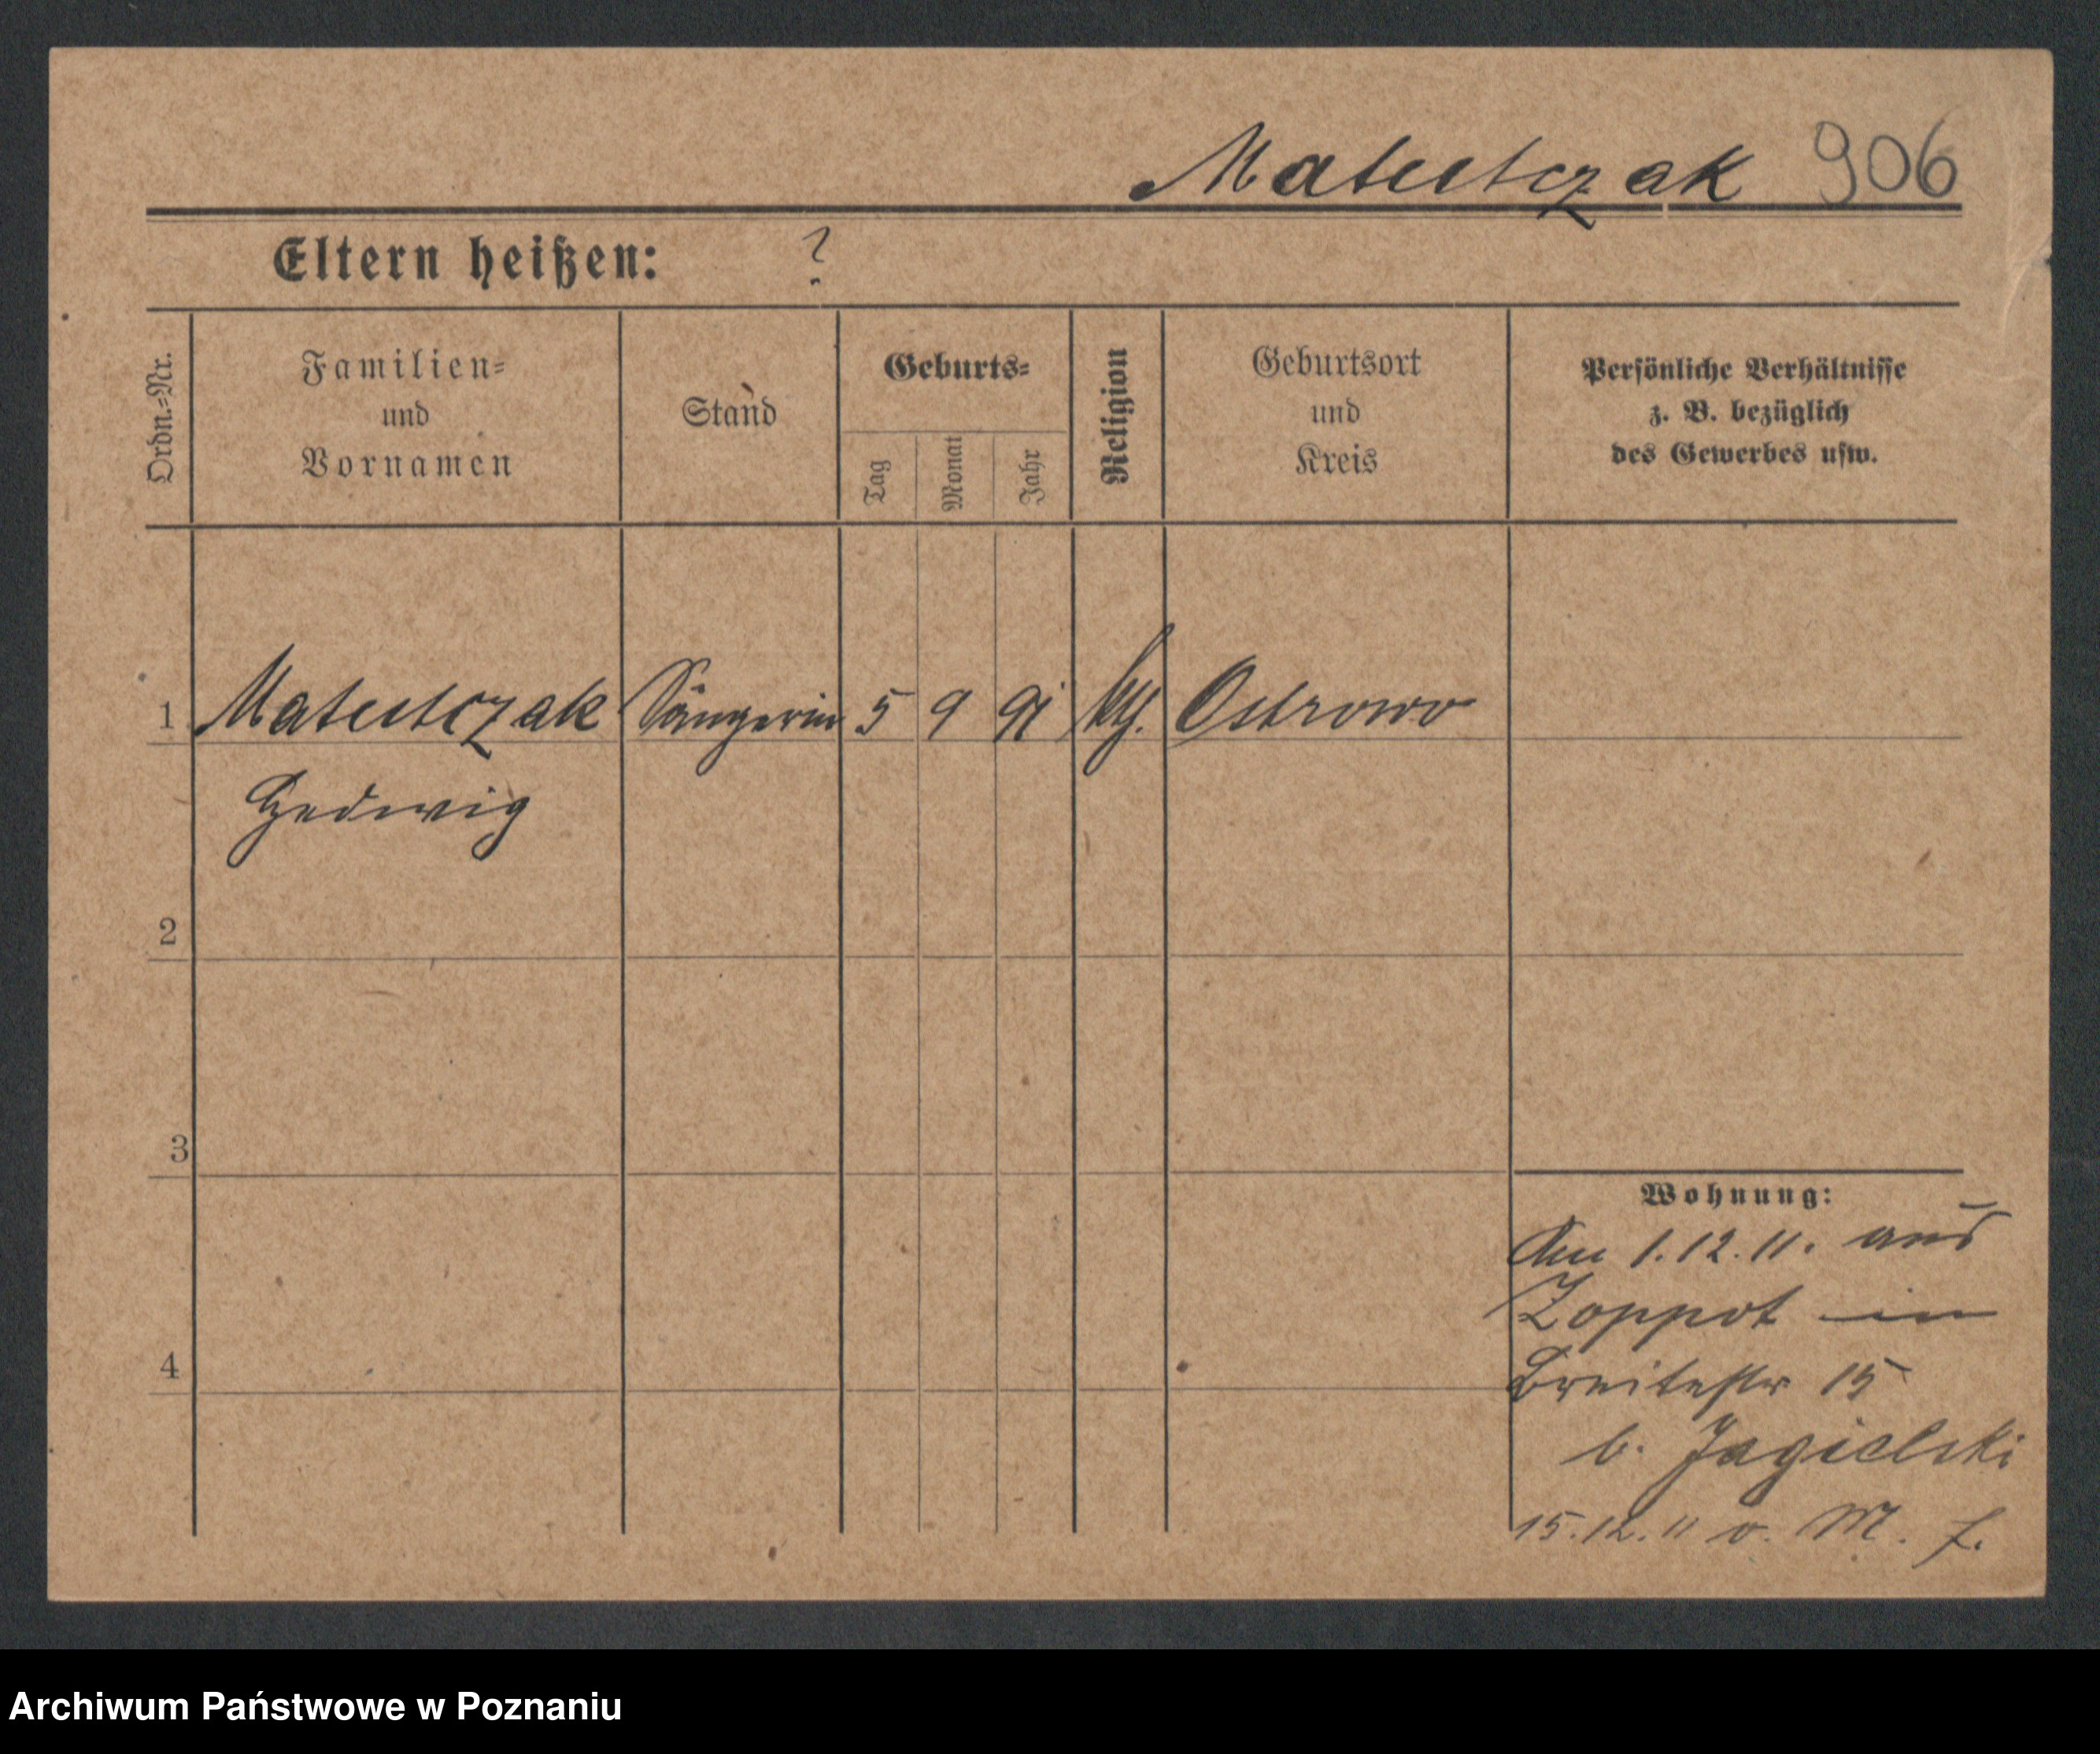 Matustczak 906
Eltern heißen: ?
Ordn.-Nr.
Familien-
und
Vornamen
Stand
Geburts-
Tag
Monat
Jahr
Religion
Geburtsort
und
Kreis
Persönliche Verhältnisse
z. B. bezüglich
des Gewerbes usw.
1 Matustczak Sängerin 5 9 91 kth. Ostrowo
Hedwig
2
3
4
Wohnung:
Am 1.12.11. aus
Zoppot in
Breitestr 15
b. Jagielski
15.12.11 v. M. f.
Archiwum Państwowe w Poznaniu